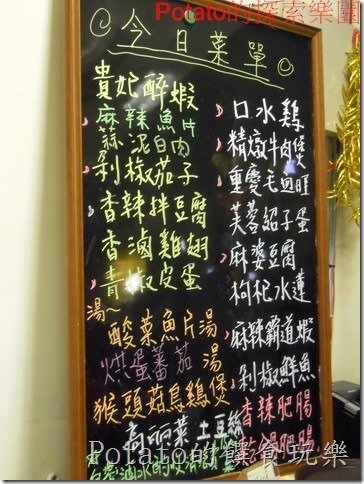 Potato的探索樂園
今日菜單
貴妃醉蝦
麻辣魚片
蒜泥白肉
剁椒茄子
香辣拌豆腐
香滷雞翅
青椒皮蛋
湯~
酸菜魚片湯
烘蛋蕃茄湯
猴頭菇烏雞煲
高麗菜、土豆絲
口水雞
精燉牛肉煲
重慶毛血旺
芙蓉紹子蛋
麻婆豆腐
枸杞水蓮
麻辣霸道蝦
剁椒鮮魚
香辣肥腸
肥腸
Potato的饌食玩樂